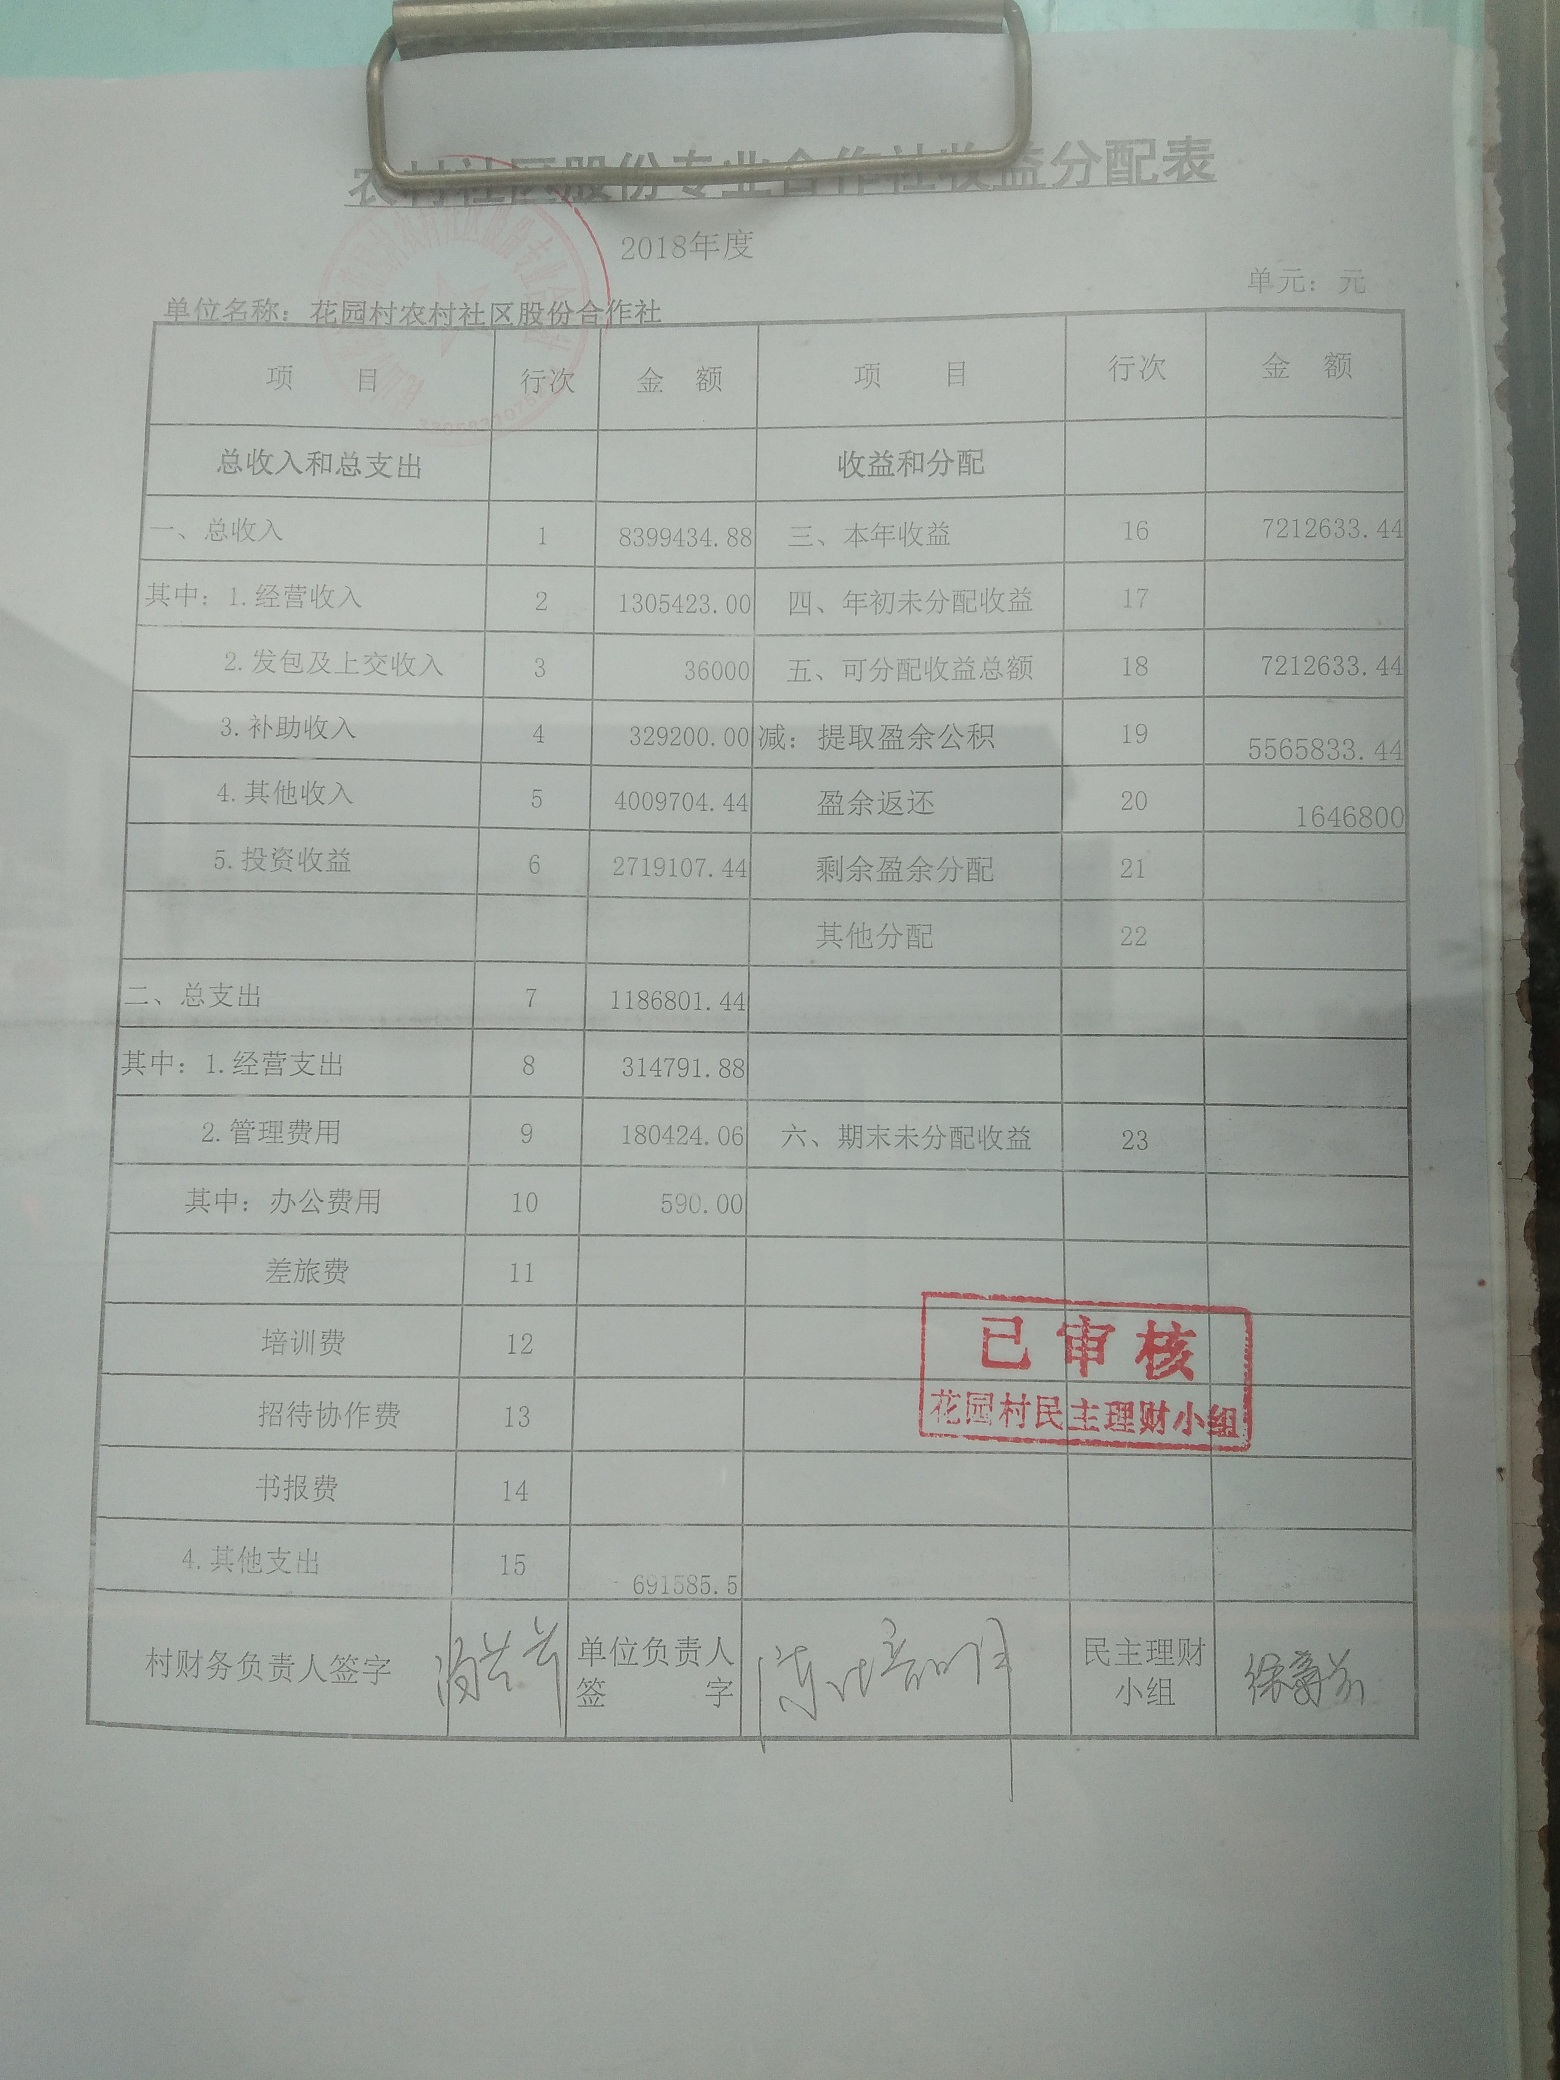 农村社区股份专业合作社收益分配表
2018年度
单元：元
单位名称：花园村农村社区股份合作社
项 目 行次 金 额 项 目 行次 金 额
总收入和总支出 收益和分配
一、总收入 1 8399434.88 三、本年收益 16 7212633.44
其中：1.经营收入 2 1305423.00 四、年初未分配收益 17
2.发包及上交收入 3 36000 五、可分配收益总额 18 7212633.44
3.补助收入 4 329200.00 减：提取盈余公积 19 5565833.44
4.其他收入 5 4009704.44 盈余返还 20 1646800
5.投资收益 6 2719107.44 剩余盈余分配 21
其他分配 22
二、总支出 7 1186801.44
其中：1.经营支出 8 314791.88
2.管理费用 9 180424.06 六、期末未分配收益 23
其中：办公费用 10 590.00
差旅费 11
培训费 12
招待协作费 13
书报费 14
4.其他支出 15 691585.5
已审核
花园村民主理财小组
村财务负责人签字 单位负责人
签 字 民主理财
小组